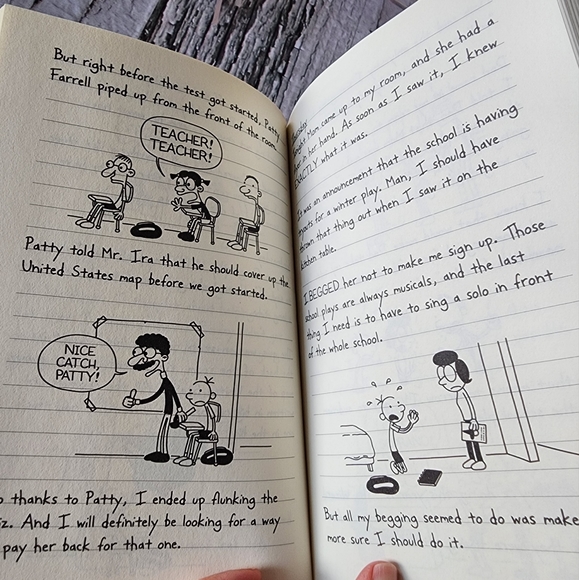 But right before the test got started, Patty
Farrell piped up from the front of the room.
TEACHER!
TEACHER!
Patty told Mr. Ira that he should cover up the
United States map before we got started.
NICE
CATCH,
PATTY!
thanks to Patty, I ended up flunking the
And I will definitely be looking for a way
pay her back for that one.
Mom came up to my room, and she had a
in her hand. As soon as I saw it, I knew
EXACTLY what it was.
It was an announcement that the school is having
for a winter play. Man, I should have
that thing out when I saw it on the
kitchen table.
I BEGGED her not to make me sign up. Those
school plays are always musicals, and the last
thing I need is to have to sing a solo in front
of the whole school.
But all my begging seemed to do was make
more sure I should do it.